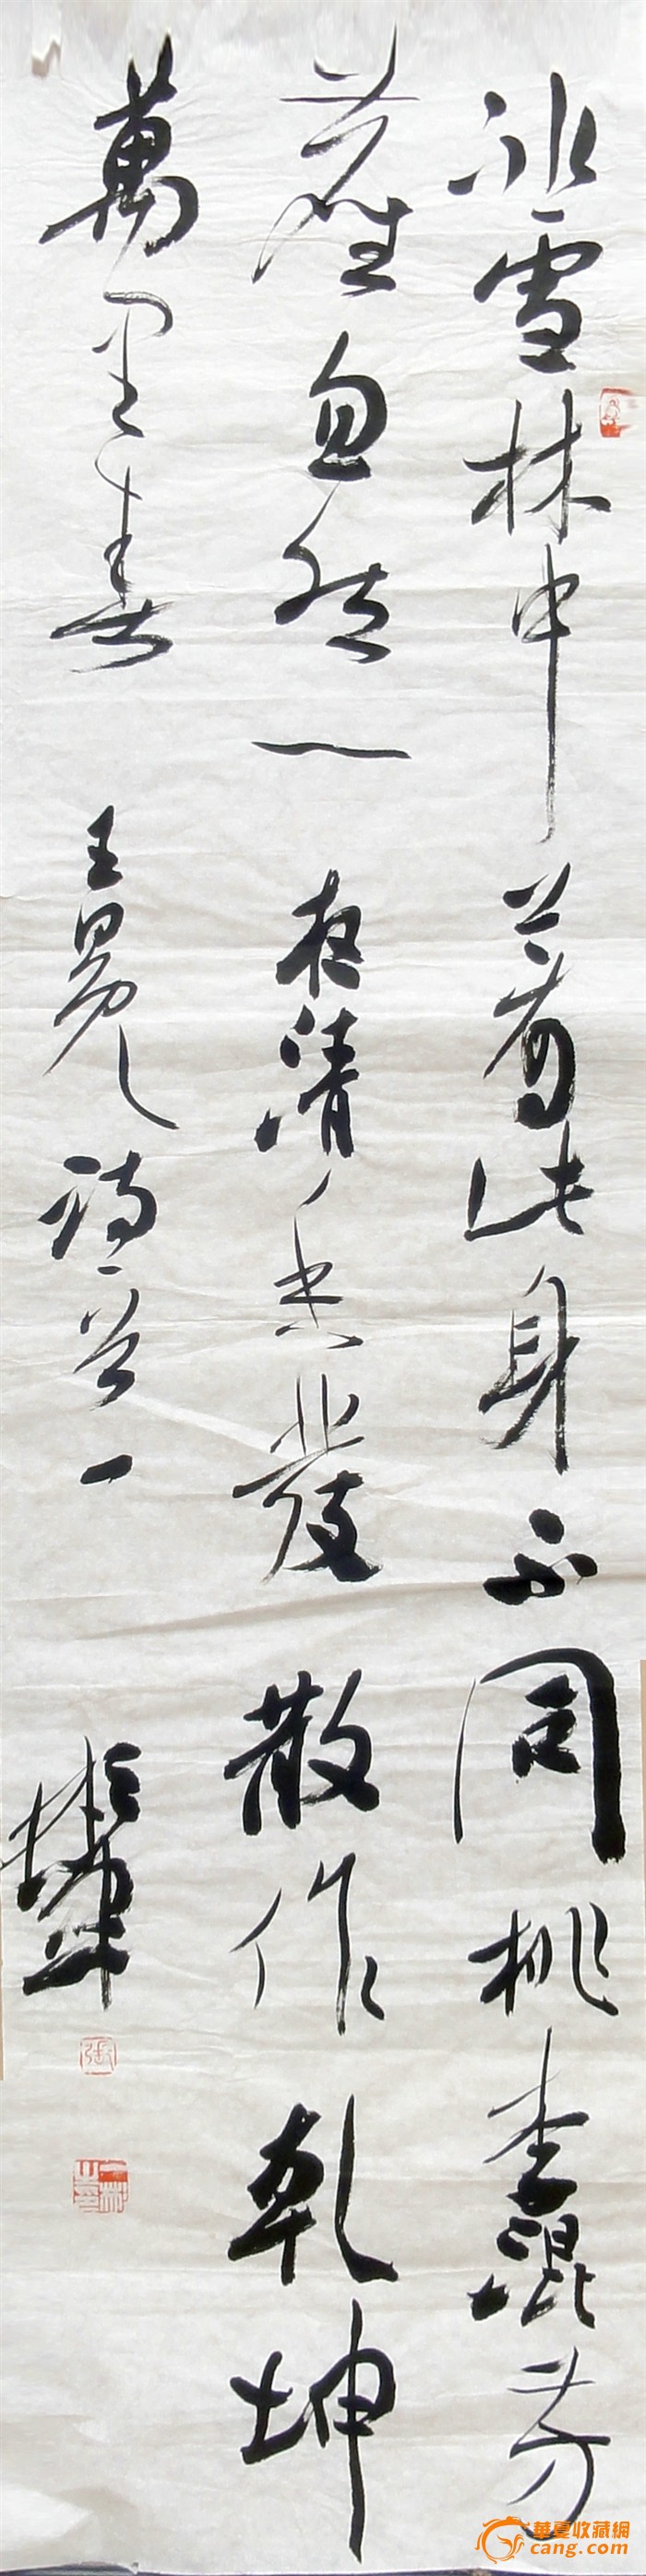 冰雪林中著此身不同桃李混芳
塵忽然一夜清香發散作乾坤
萬里春
王冕詩一首
張
華夏收藏網
cang.com